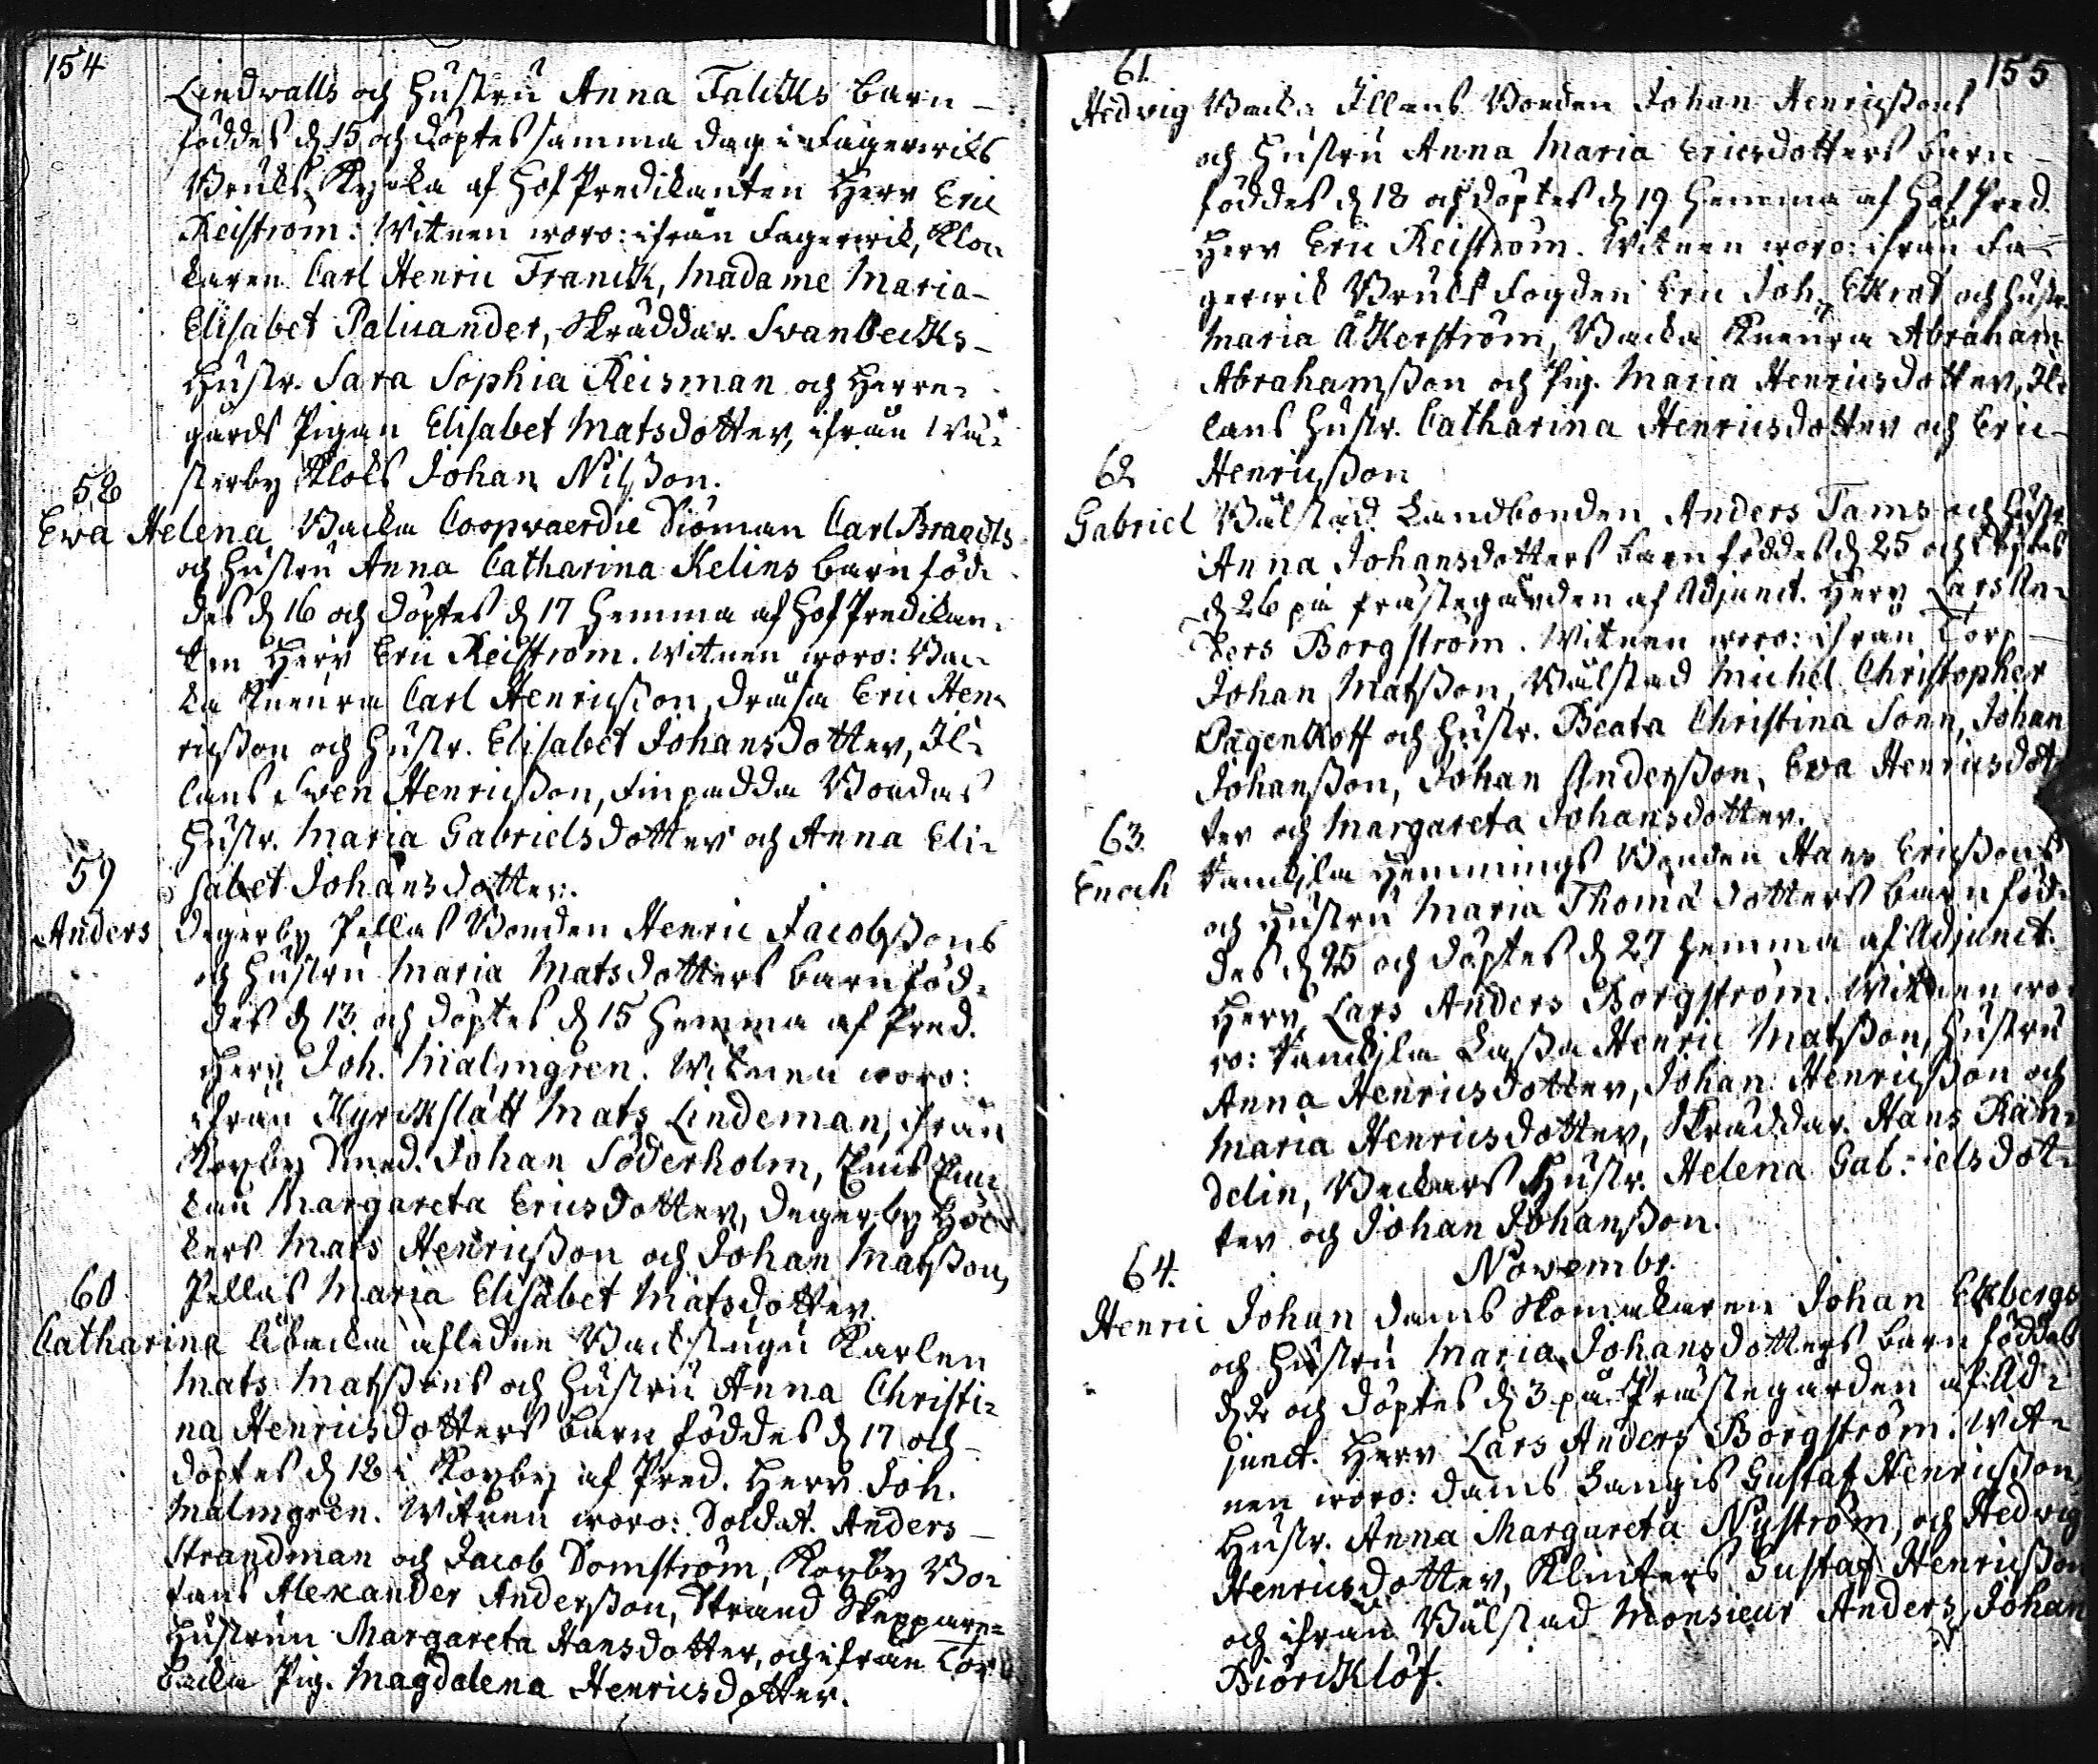 154
Lindwalls och Hustru Anna Falcks barn
föddes d. 15 och döptes samma dag i Fagerwiks
Bruks Kyrka af HofPredikanten Herr Eric
Reiström. Witnen woro: ifrån Fagerwik, Kloc
karen Carl Henric Franck, Madame Maria
Elisabet Palicander, Skräddar. Svanbecks
Hustr. Sara Sophia Reisman och Herre-
gårds Pigan Elisabet Matsdotter, ifrån Wä-
sterby Kloks Johan Nilsson.
58
Ewa Helena Backa Coopvaerdie Siöman Carl Brandts
och Hustru Anna Catharina Kelins barn föd-
des d. 16 och döptes d. 17 hemma af HofPredikan-
ten Herr Eric Reiström. Witnen woro: Bac-
ka Knevra Carl Henricsson, Dräsa Eric Hen-
ricsson och Hustr. Elisabet Johansdotter, Il-
lans Swen Henricsson, Finpadda Bondas
Hustr. Maria Gabrielsdotter och Anna Eli-
sabet Johansdotter.
59
Anders Degerby Pellas Bonden Henric Jacobssons
och Hustru Maria Matsdotters barn föd-
des d. 13 och döptes d. 15 hemma af Pred.
Herr Joh. Malmgren. Witnen woro:
ifrån Kyrckslätt Mats Lindeman, ifrån
Koxby Smed. Johan Söderholm, Enk
Margareta Ericsdotter, Degerby Höc-
kers Mats Henricsson och Johan Matsson,
Pellas Maria Elisabet Matsdotter.
60
Catharina Åbacka afledne Backstugu Karlen
Mats Matssons och Hustru Anna Christi-
na Henricsdotters barn föddes d. 17 och
döptes d. 18 i Koxby af Pred. Herr Joh.
Malmgren. Witnen woro: Soldat. Anders
Strandman och Jacob Domström, Koxby Bo-
tans Alexander Andersson, Strand Skeppars-
Hustrun Margareta Hansdotter, och ifrån Tor
backa Pig. Magdalena Henricsdotter.
155
61.
Hedvig Backa Illans Bonden Johan Henricssons
och Hustru Anna Maria Ericsdotters barn
föddes d. 18 och döptes d. 19 hemma af Hof Pred.
Herr Eric Reiström. Witnen woro: ifrån Fa-
gerwik Bruks Fogden Eric Joh. Ekrot och Hustr.
Maria Åkerström, Backa Knevra Abraham
Abrahamsson och Pig. Maria Henricsdotter, Il-
lans Hustr. Catharina Henricsdotter och Eric
Henricsson
62
Gabriel Wålstad Landbonden Anders Tams och Hustr.
Anna Johansdotters barn föddes d. 25 och döptes
d. 26 på prästegården af Adjunct. Herr Lars An-
ders Borgström. Witnen woro: ifrån Torp
Johan Matsson, Wålstad Michel Christopher
Pagenkoff och Hustr. Beata Christina Sonn, Johan
Johansson, Johan Andersson, Ewa Henricsdot-
ter och Margareta Johansdotter.
63.
Enoch Hemmings Bonden Hans Ericssons
och Hustru Maria Thomædotters barn föd-
des d. 25 och döptes d. 27 hemma af Adjunct.
Herr Lars Anders Borgström. Witnen wo-
ro: Lassa Henric Matsson, Hustru
Anna Henricsdotter, Johan Henricsson och
Maria Henricsdotter, Skräddar. Hans Rän-
delin, Backars Hustr. Helena Gabrielsdot-
ter och Johan Johansson.
Novembr.
64.
Henric Johan Dams Skomakaren Johan Ekbergs
och Hustru Maria Johansdotters barn föddes
d. 2 och döptes d. 3 på Prästegården af Ad-
junct. Herr Lars Anders Borgström. Wit-
nen woro: Dams Langis Gustaf Henricsson,
Hustr. Anna Margareta Nyström, och Hedvig
Henricsdotter, Klinters Gustaf Henricsson
och ifrån Wålstad Monsieur Anders Johan
Biörcklöf.